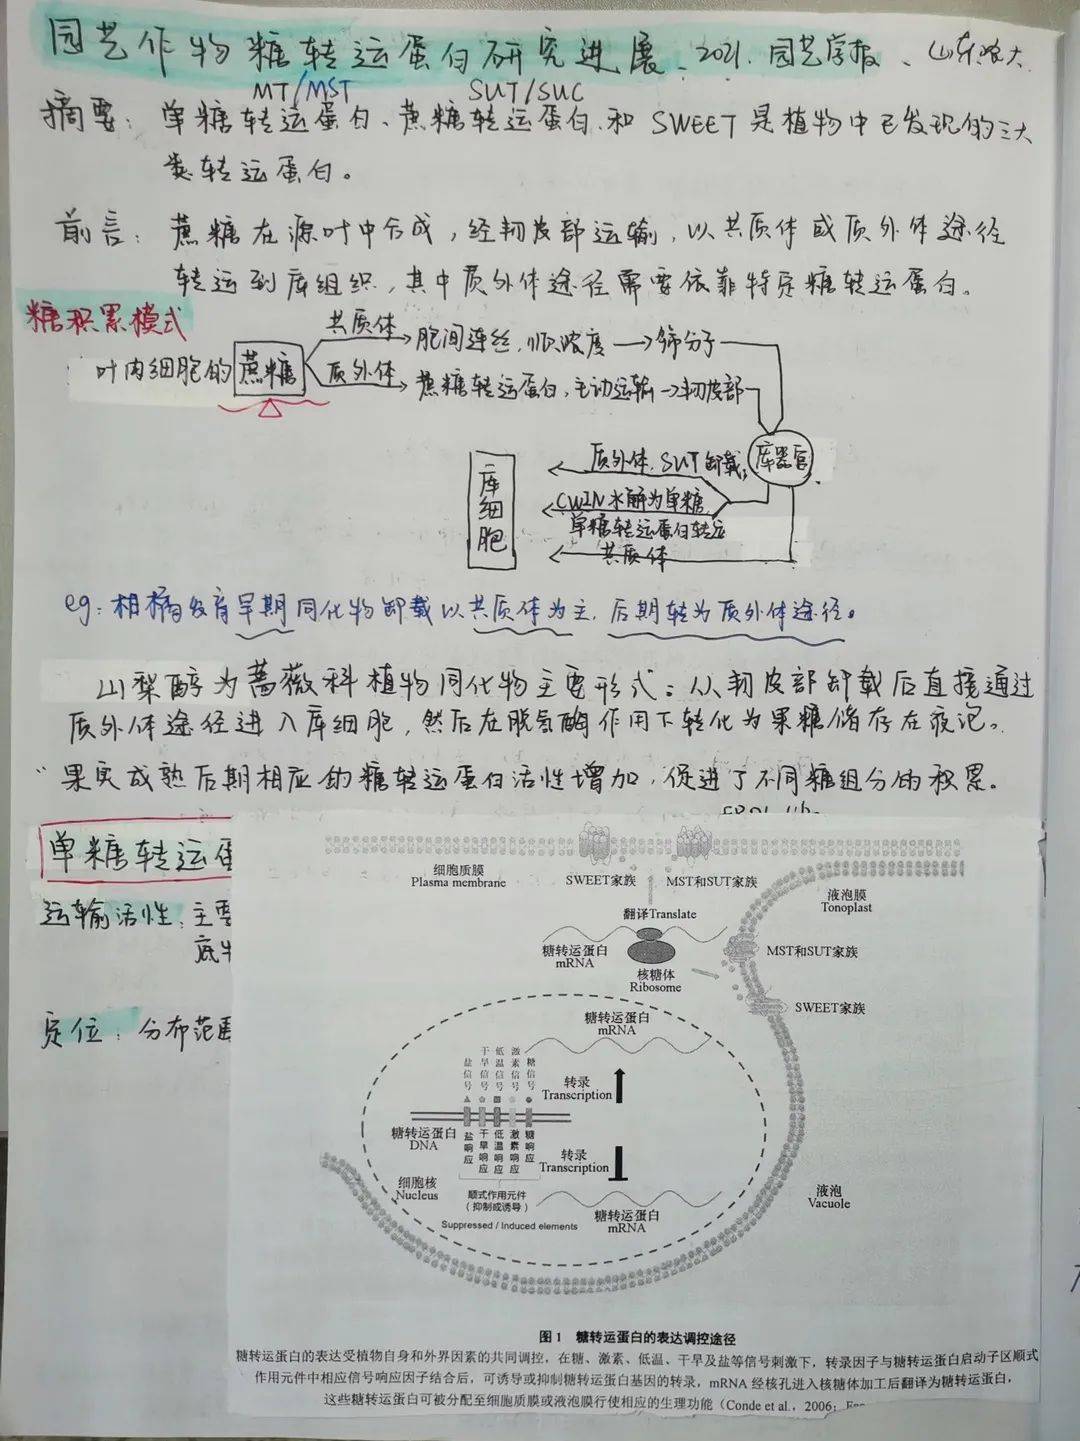 园艺作物糖转运蛋白研究进展、2021.园艺学报、山东农大
MT/MST SUT/SUC
摘要：单糖转运蛋白、蔗糖转运蛋白、和SWEET是植物中已发现的三大
类转运蛋白。
前言：蔗糖在源叶中合成，经韧皮部运输，以共质体或质外体途径
转运到库组织，其中质外体途径需要依靠特定糖转运蛋白。
糖积累模式
共质体 胞间连丝，顺浓度→筛分子
叶肉细胞的蔗糖
质外体 蔗糖转运蛋白，主动运输→韧皮部
库器官
质外体，SUT卸载；
CWIN水解为单糖
单糖转运蛋白转运
共质体
库细胞
eg：柑橘发育早期同化物卸载以共质体为主，后期转为质外体途径。
山梨醇为蔷薇科植物同化物主要形式：从韧皮部卸载后直接通过
质外体途径进入库细胞，然后在脱氢酶作用下转化为果糖储存在液泡。
果实成熟后期相应的糖转运蛋白活性增加，促进了不同糖组分的积累。
单糖转运蛋
运输活性：主要
底物
定位：分布范围
细胞质膜
Plasma membrane
SWEET家族
MST和SUT家族
液泡膜
Tonoplast
翻译Translate
糖转运蛋白
mRNA
核糖体
Ribosome
MST和SUT家族
SWEET家族
糖转运蛋白
mRNA
盐信号 干旱信号 低温信号 激素信号 糖信号
转录
Transcription
糖转运蛋白
DNA
盐响应 干旱响应 低温响应 激素响应 糖响应
转录
Transcription
细胞核
Nucleus
顺式作用元件
（抑制或诱导）
Suppressed / Induced elements
糖转运蛋白
mRNA
液泡
Vacuole
图 1 糖转运蛋白的表达调控途径
糖转运蛋白的表达受植物自身和外界因素的共同调控，在糖、激素、低温、干旱及盐等信号刺激下，转录因子与糖转运蛋白启动子区顺式
作用元件中相应信号响应因子结合后，可诱导或抑制糖转运蛋白基因的转录，mRNA 经核孔进入核糖体加工后翻译为糖转运蛋白，
这些糖转运蛋白可被分配至细胞质膜或液泡膜行使相应的生理功能（Conde et al.，2006；